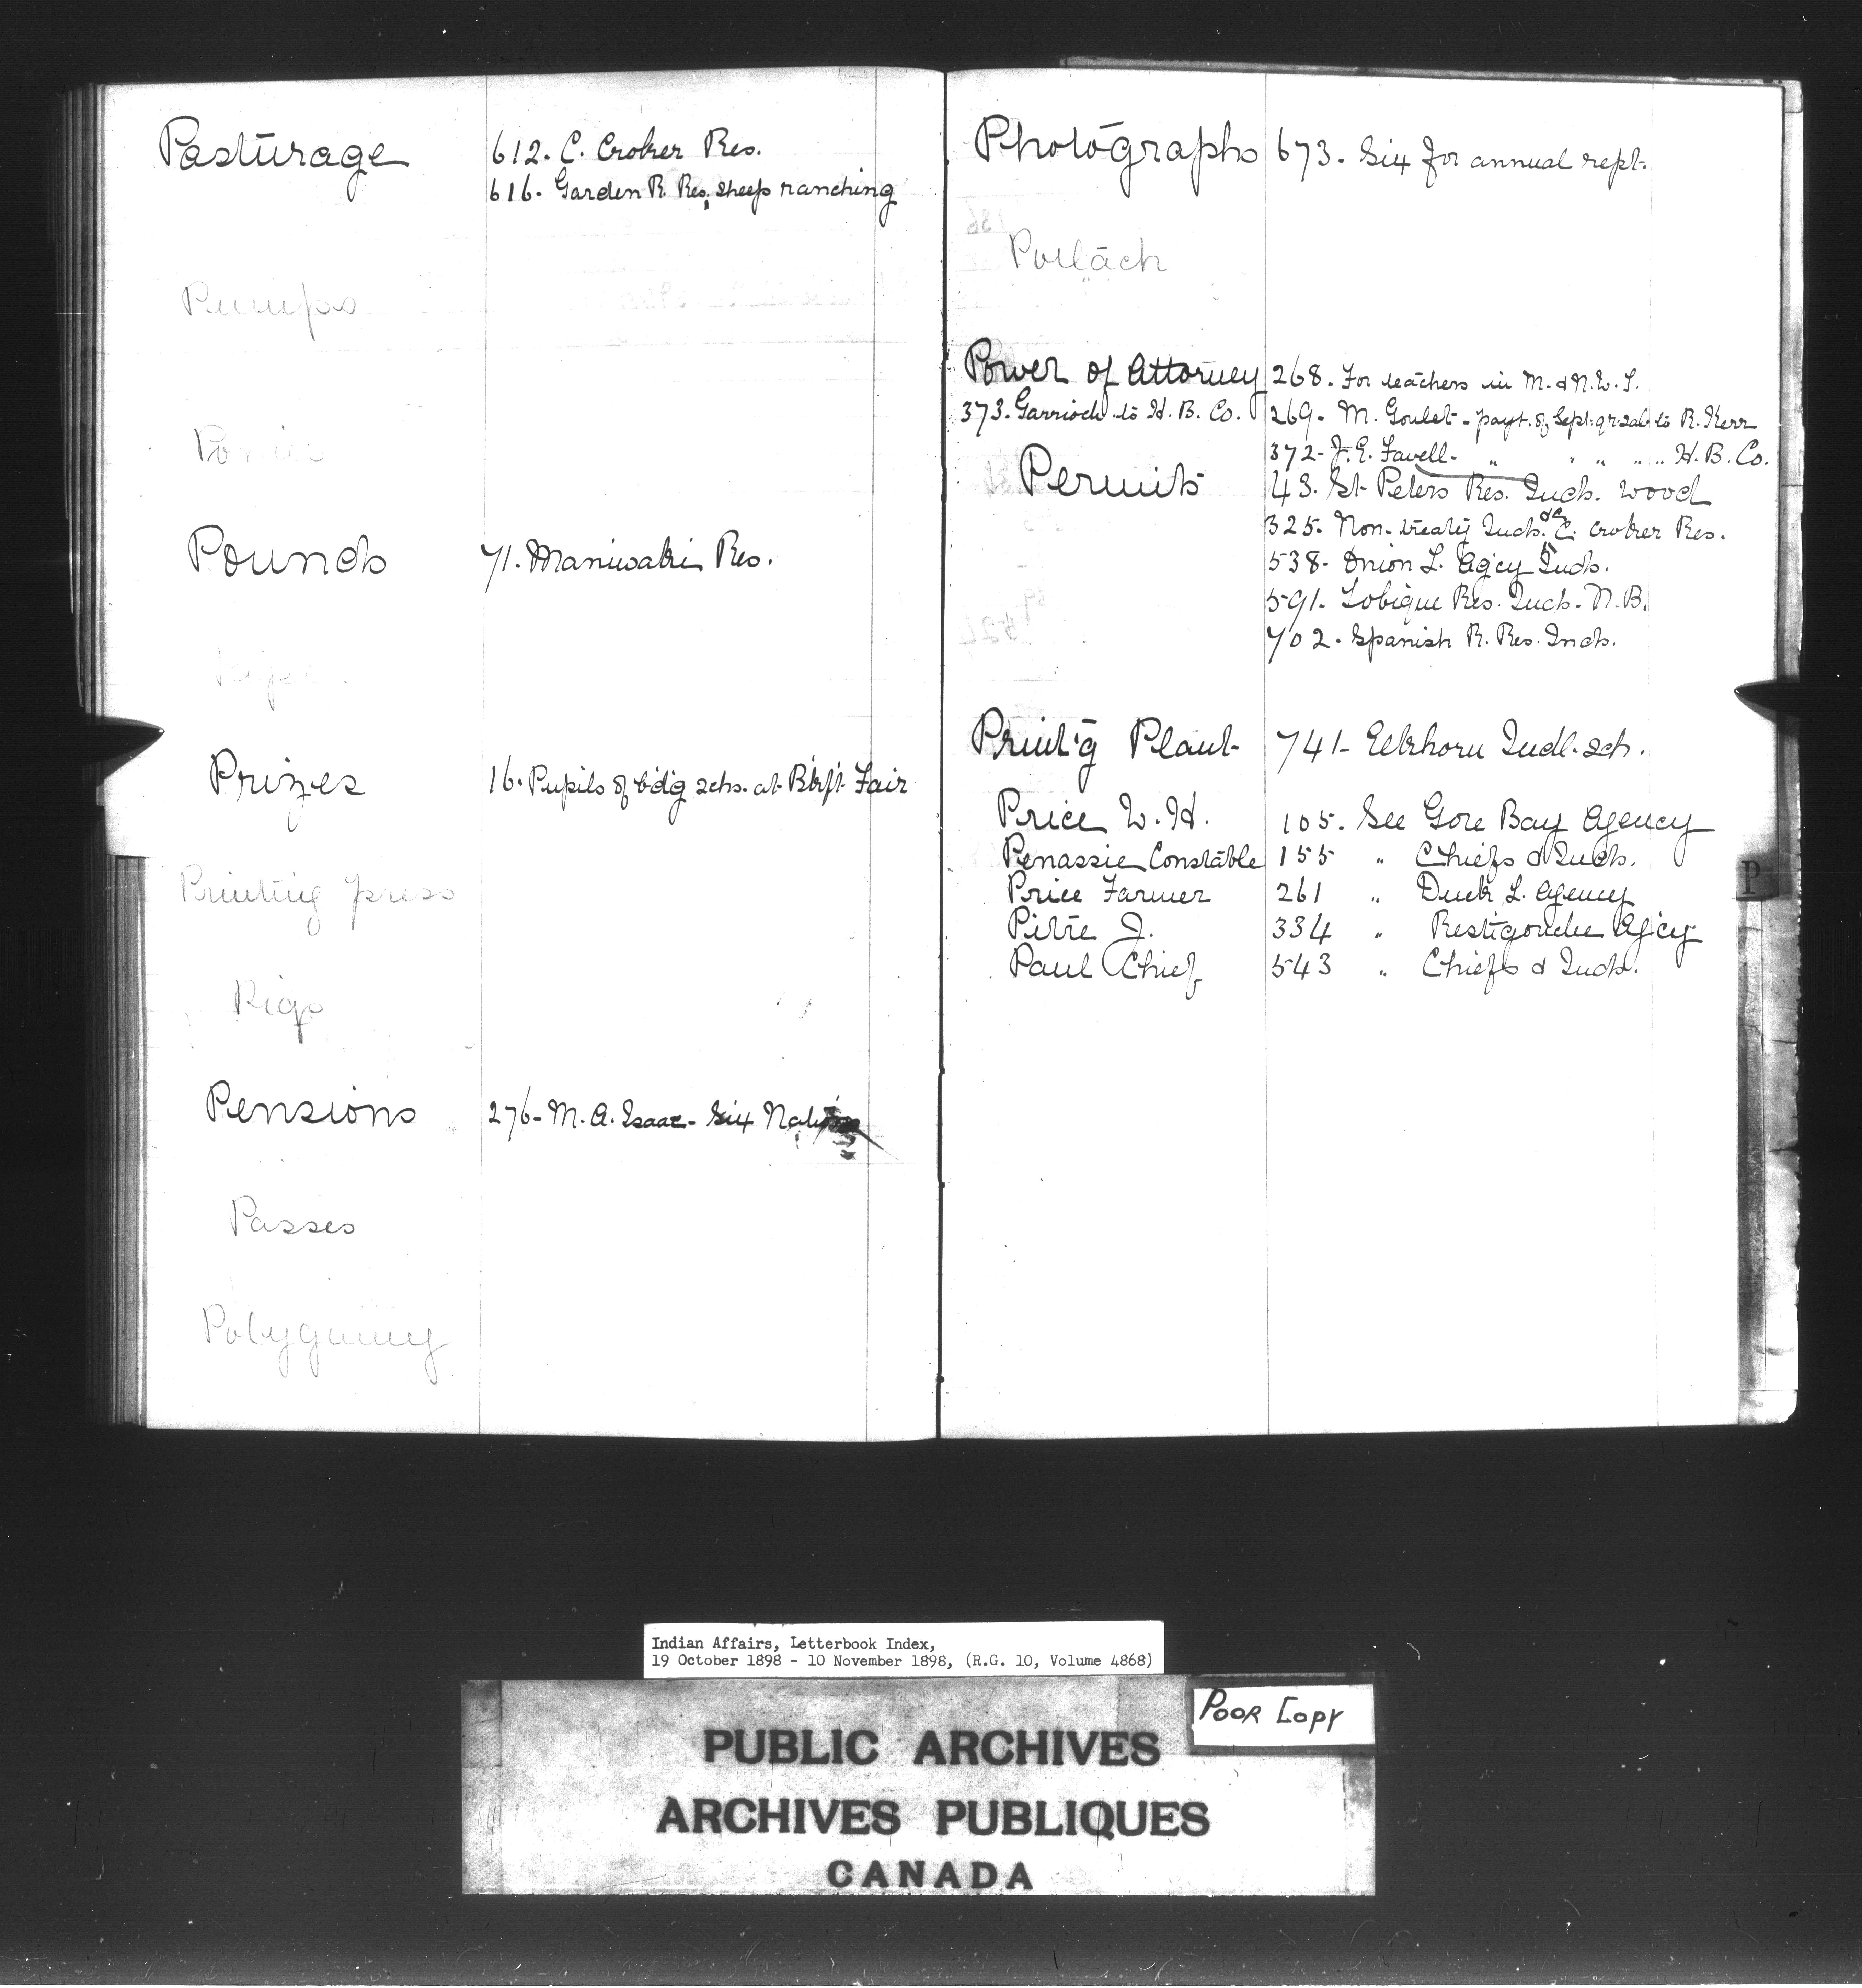 Pasturage 612. C. Croker Res.
616. Garden R. Res, sheep ranching
Pumps
Ponies
Pounds 71. Maniwaki Res.
Pipes
Prizes 16. Pupils of b'd'g schs. at B't'f't Fair
Printing press
Pigs
Pensions 276- M. A. Isaac- Six Nations
Passes
Polygamy
Photographs 673. Six for annual rept.
Potlach
Power of Attorney 268. For teachers in M. & N.W.T.
373. Garrioch to H. B. Co. 269- M. Goulet - payt. of Sept. qr sal. to R. Kerr
372- J. E. Favell- " " " " " H. B. Co.
Permits 43. St. Peters Res. Inds. wood
325. Non-treaty Inds. de C. Croker Res.
538- Onion L. Ag'cy Inds.
591- Tobique Res. Inds- N. B.
702. Spanish R. Res. Inds.
Print'g Plant 741- Elkhorn Indl. sch.
Price W. H. 105. See Gore Bay Agency
Penassie Constable 155 " Chiefs & Inds.
Price Farmer 261 " Duck L. Agency
Pitre J. 334 " Restigouche Ag'cy
Paul Chief 543 " Chiefs & Inds.
P
Indian Affairs, Letterbook Index,
19 October 1898 - 10 November 1898, (R.G. 10, Volume 4868)
POOR COPY
PUBLIC ARCHIVES
ARCHIVES PUBLIQUES
CANADA